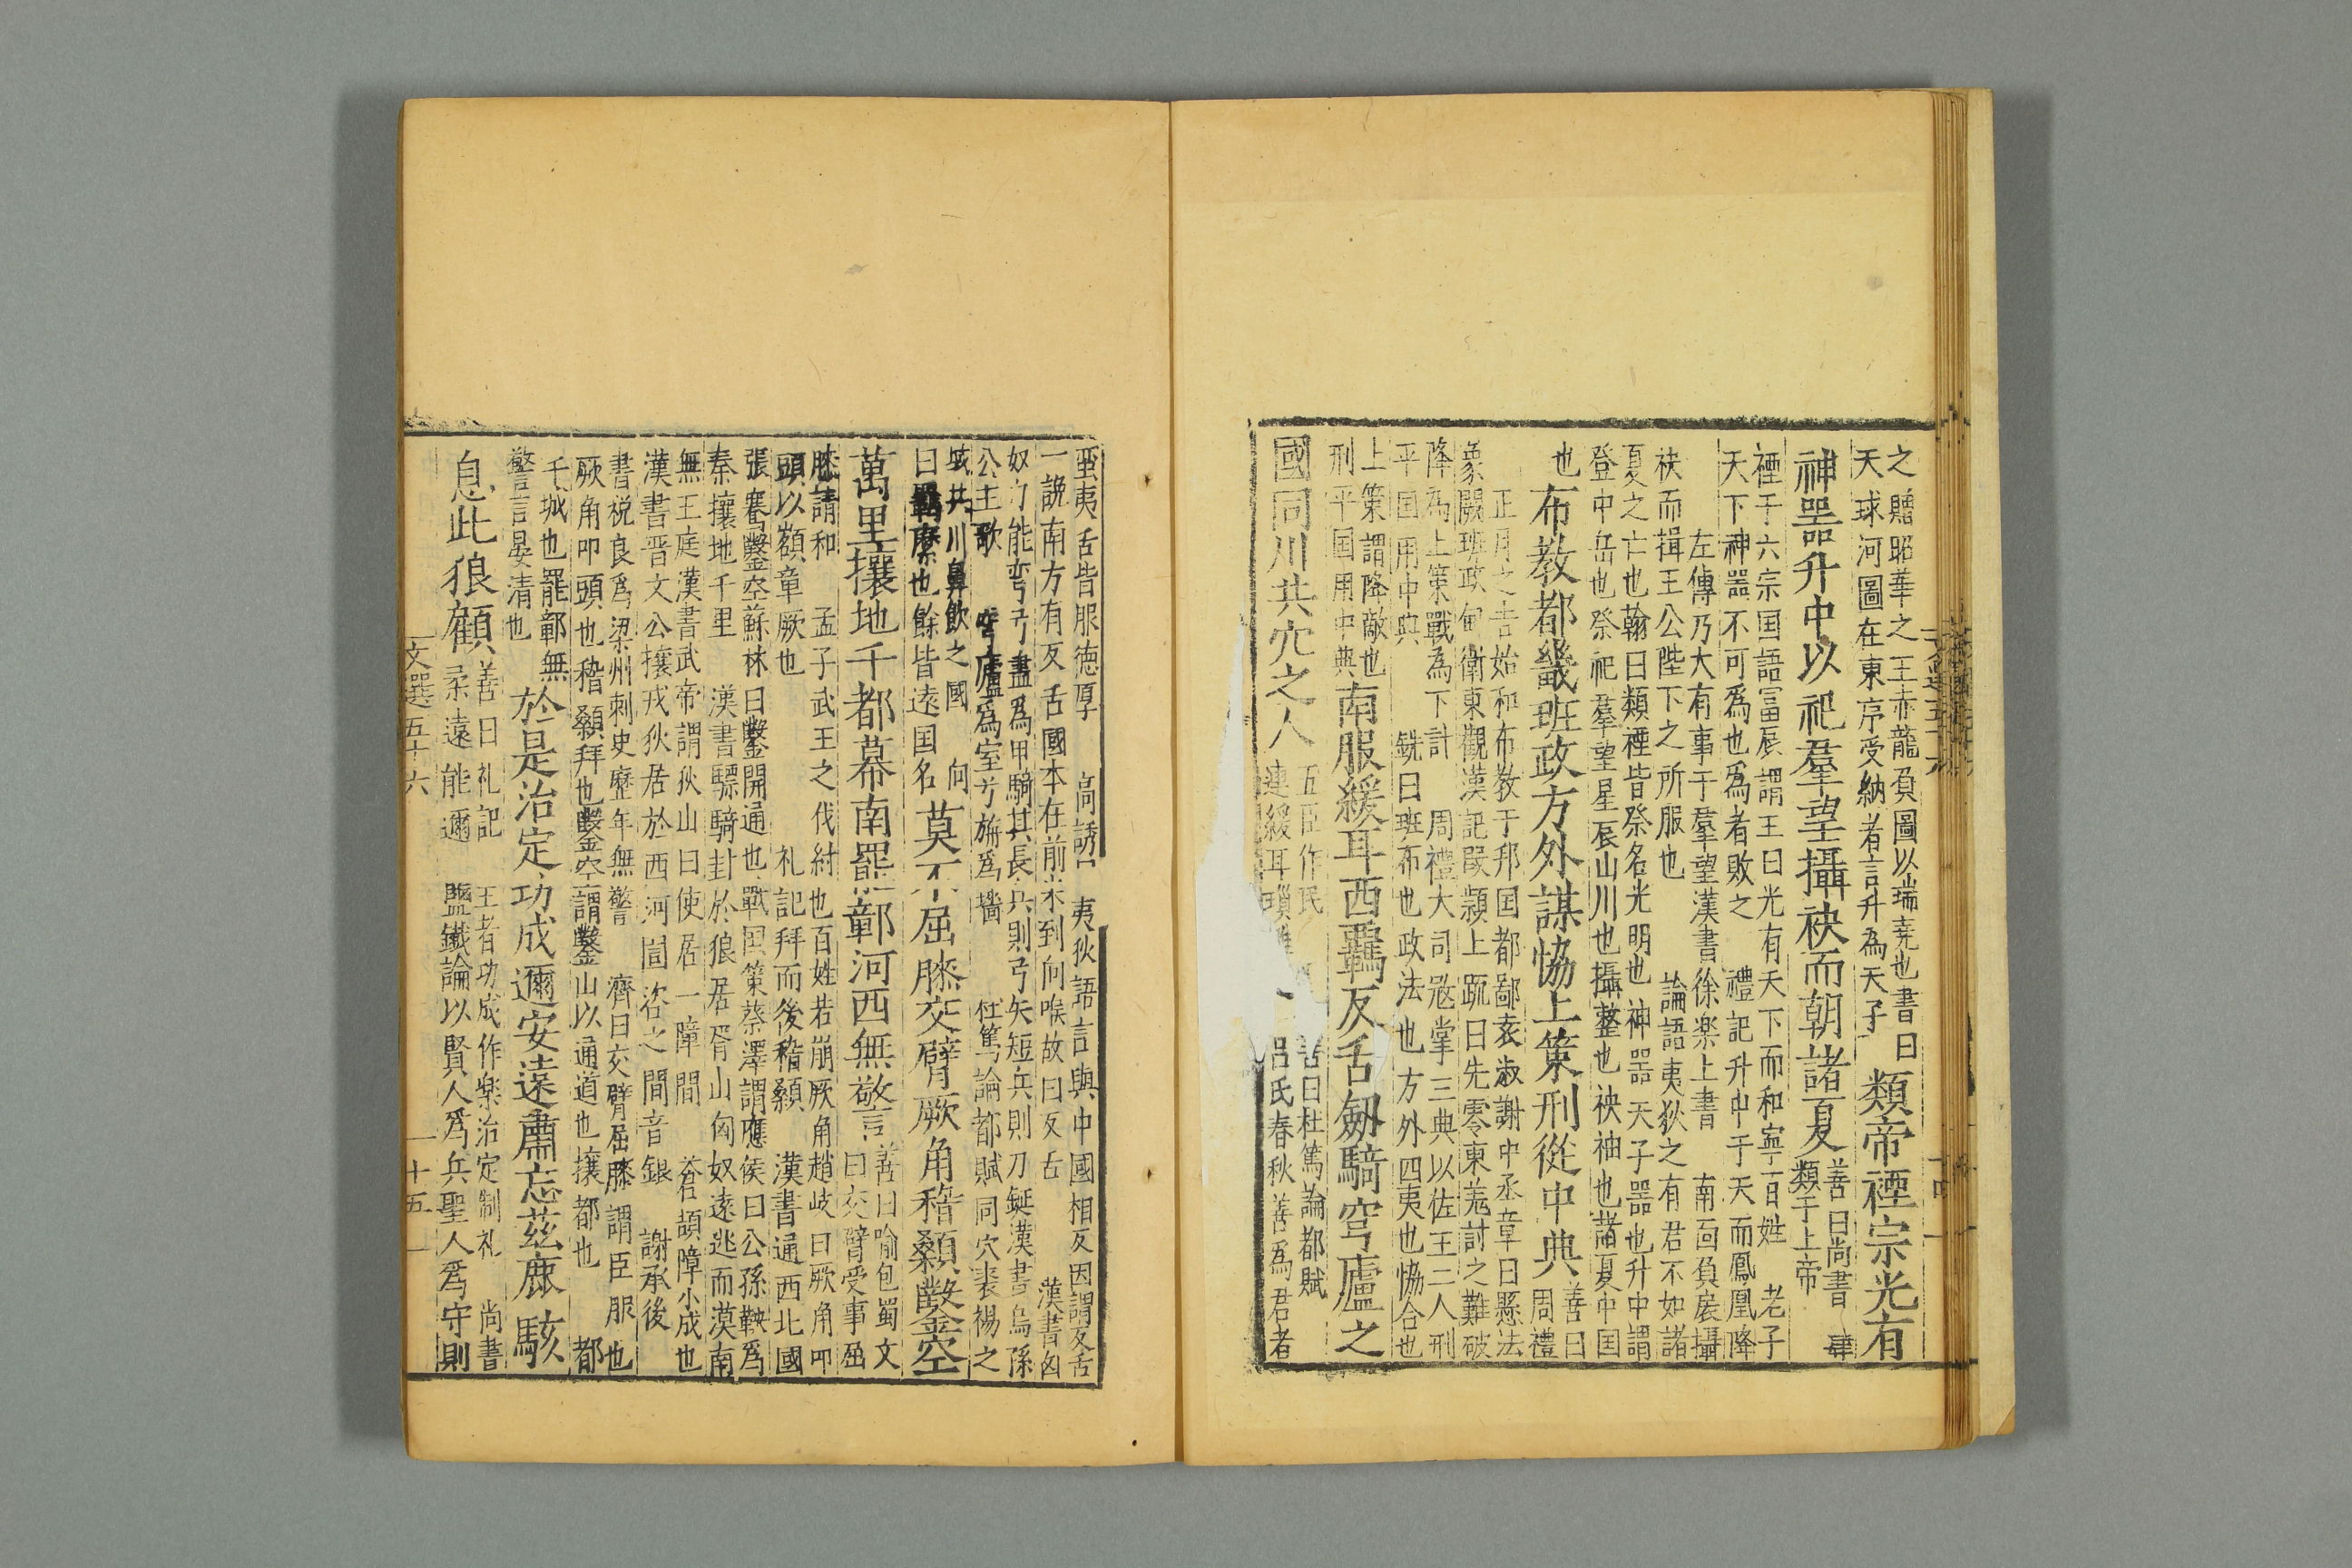 之贈昭華之王赤龍負圖以端堯也書曰
天球河圖在東序受納者言升為天子
類帝禋宗光有
神噐升中以祀羣望攝袂而朝諸夏
善曰尚書肆
類于上帝
禋于六宗国語冨辰謂王曰光有天下而和寧百姓老子
天下神噐不可爲也爲者敗之禮記升中于天而鳳凰降
左傳乃大有事于羣望漢書徐楽上書南面負扆攝
袂而揖王公陛下之所服也論語夷狄之有君不如諸
夏之亡也翰曰類禋皆祭名光明也神噐天子器也升中謂
登中岳也祭祀羣望星辰山川也攝整也袂袖也諸夏中国
也
布教都畿班政方外謀恊上策刑從中典
善曰
周禮
正月之吉始和布教于邦国都鄙袁淑謝中丞章曰懸法
象闕班政甸衛東觀漢記段熲上疏曰先零東羗討之難破
降為上策戰為下計周禮大司寇掌三典以佐王二人刑
平国用中典銑曰班布也政法也方外四夷也恊合也
上策謂降敵也
刑平国用中典
南服緩耳西羈反舌劔騎穹廬之
國同川共穴之人
五臣作民善曰杜篤論都賦
連緩耳瑣雕呂氏春秋善爲君者
蛮夷舌皆服徳厚高誘曰夷狄語言與中國相反因謂反舌
一說南方有反舌國本在前末到向喉故曰反舌漢書匈
奴力能弯弓盡爲甲騎其長兵則弓矢短兵則刀鋋漢書烏孫
公主歌穹廬爲室兮旃爲墻杜篤論都賦同穴裘褐之
域共川鼻飲之國向
曰羈縻也餘皆遠国名
莫不屈膝交臂厥角稽顙鑿空
萬里攘地千都幕南罷鄣河西無警
善曰喻包蜀文
曰交臂受事屈
膝請和孟子武王之伐紂也百姓若崩厥角趙岐曰厥角叩
頭以額章厥也礼記拜而後稽顙漢書通西北國
張騫鑿空蘇林曰鑿開通也戰国策蔡澤謂應侯曰公孫鞅爲
秦攘地千里漢書驃騎封於狼居胥山匈奴遠逃而漠南
無王庭漢書武帝謂狄山曰使居一障間蒼頡障小成也
漢書晋文公攘戎狄居於西河圁洛之間音銀謝承後
書税良爲梁州刺史歷年無警濟曰交臂屈膝謂臣服也
厥角叩頭也稽顙拜也鑿空謂鑿山以通道也攘都也都
千城也罷鄣無
警言晏清也
於是治定功成邇安遠肅忘茲鹿駭
息此狼顧
善曰礼記王者功成作楽治定制礼尚書
柔遠能邇盬鐵論以賢人爲兵聖人爲守則
文選五十六
十五